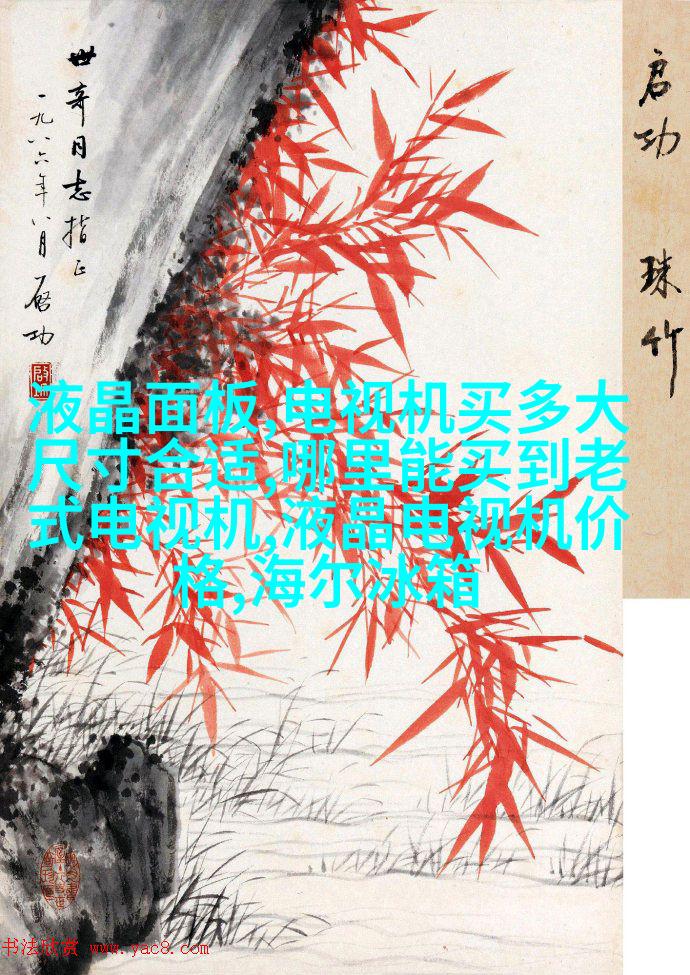 世奇同志指正
一九八六年八月启功
启功 珠竹
液晶面板,电视机买多大
尺寸合适,哪里能买到老
式电视机,液晶电视机价
格,海尔冰箱
书法欣赏 www.yac8.com